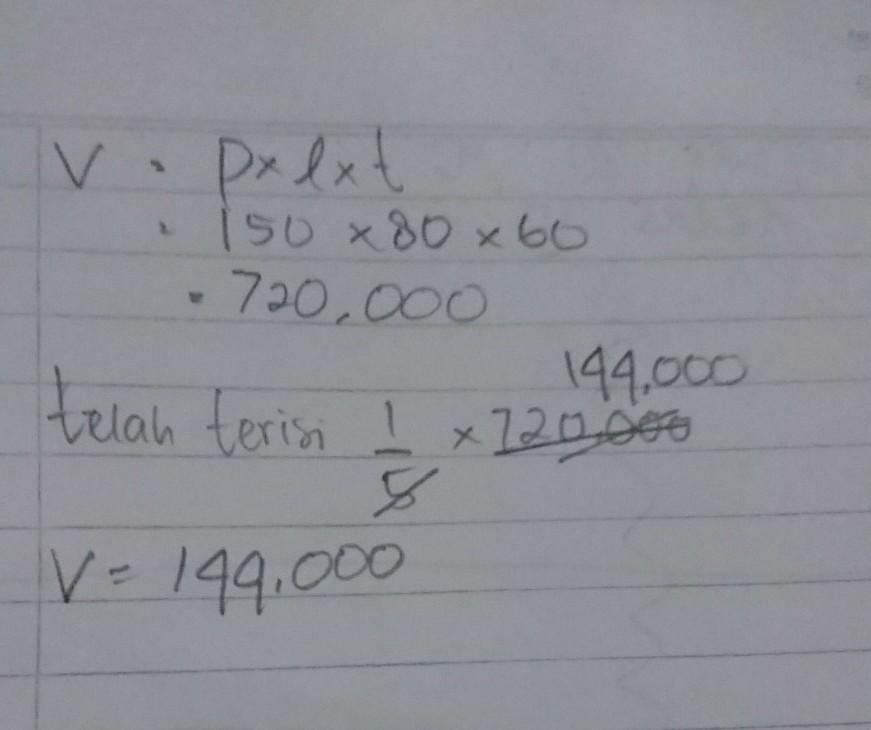 V = p x l x t
= 150 x 80 x 60
= 720.000
144.000
telah terisi 1/5 x 720.000
V = 144.000